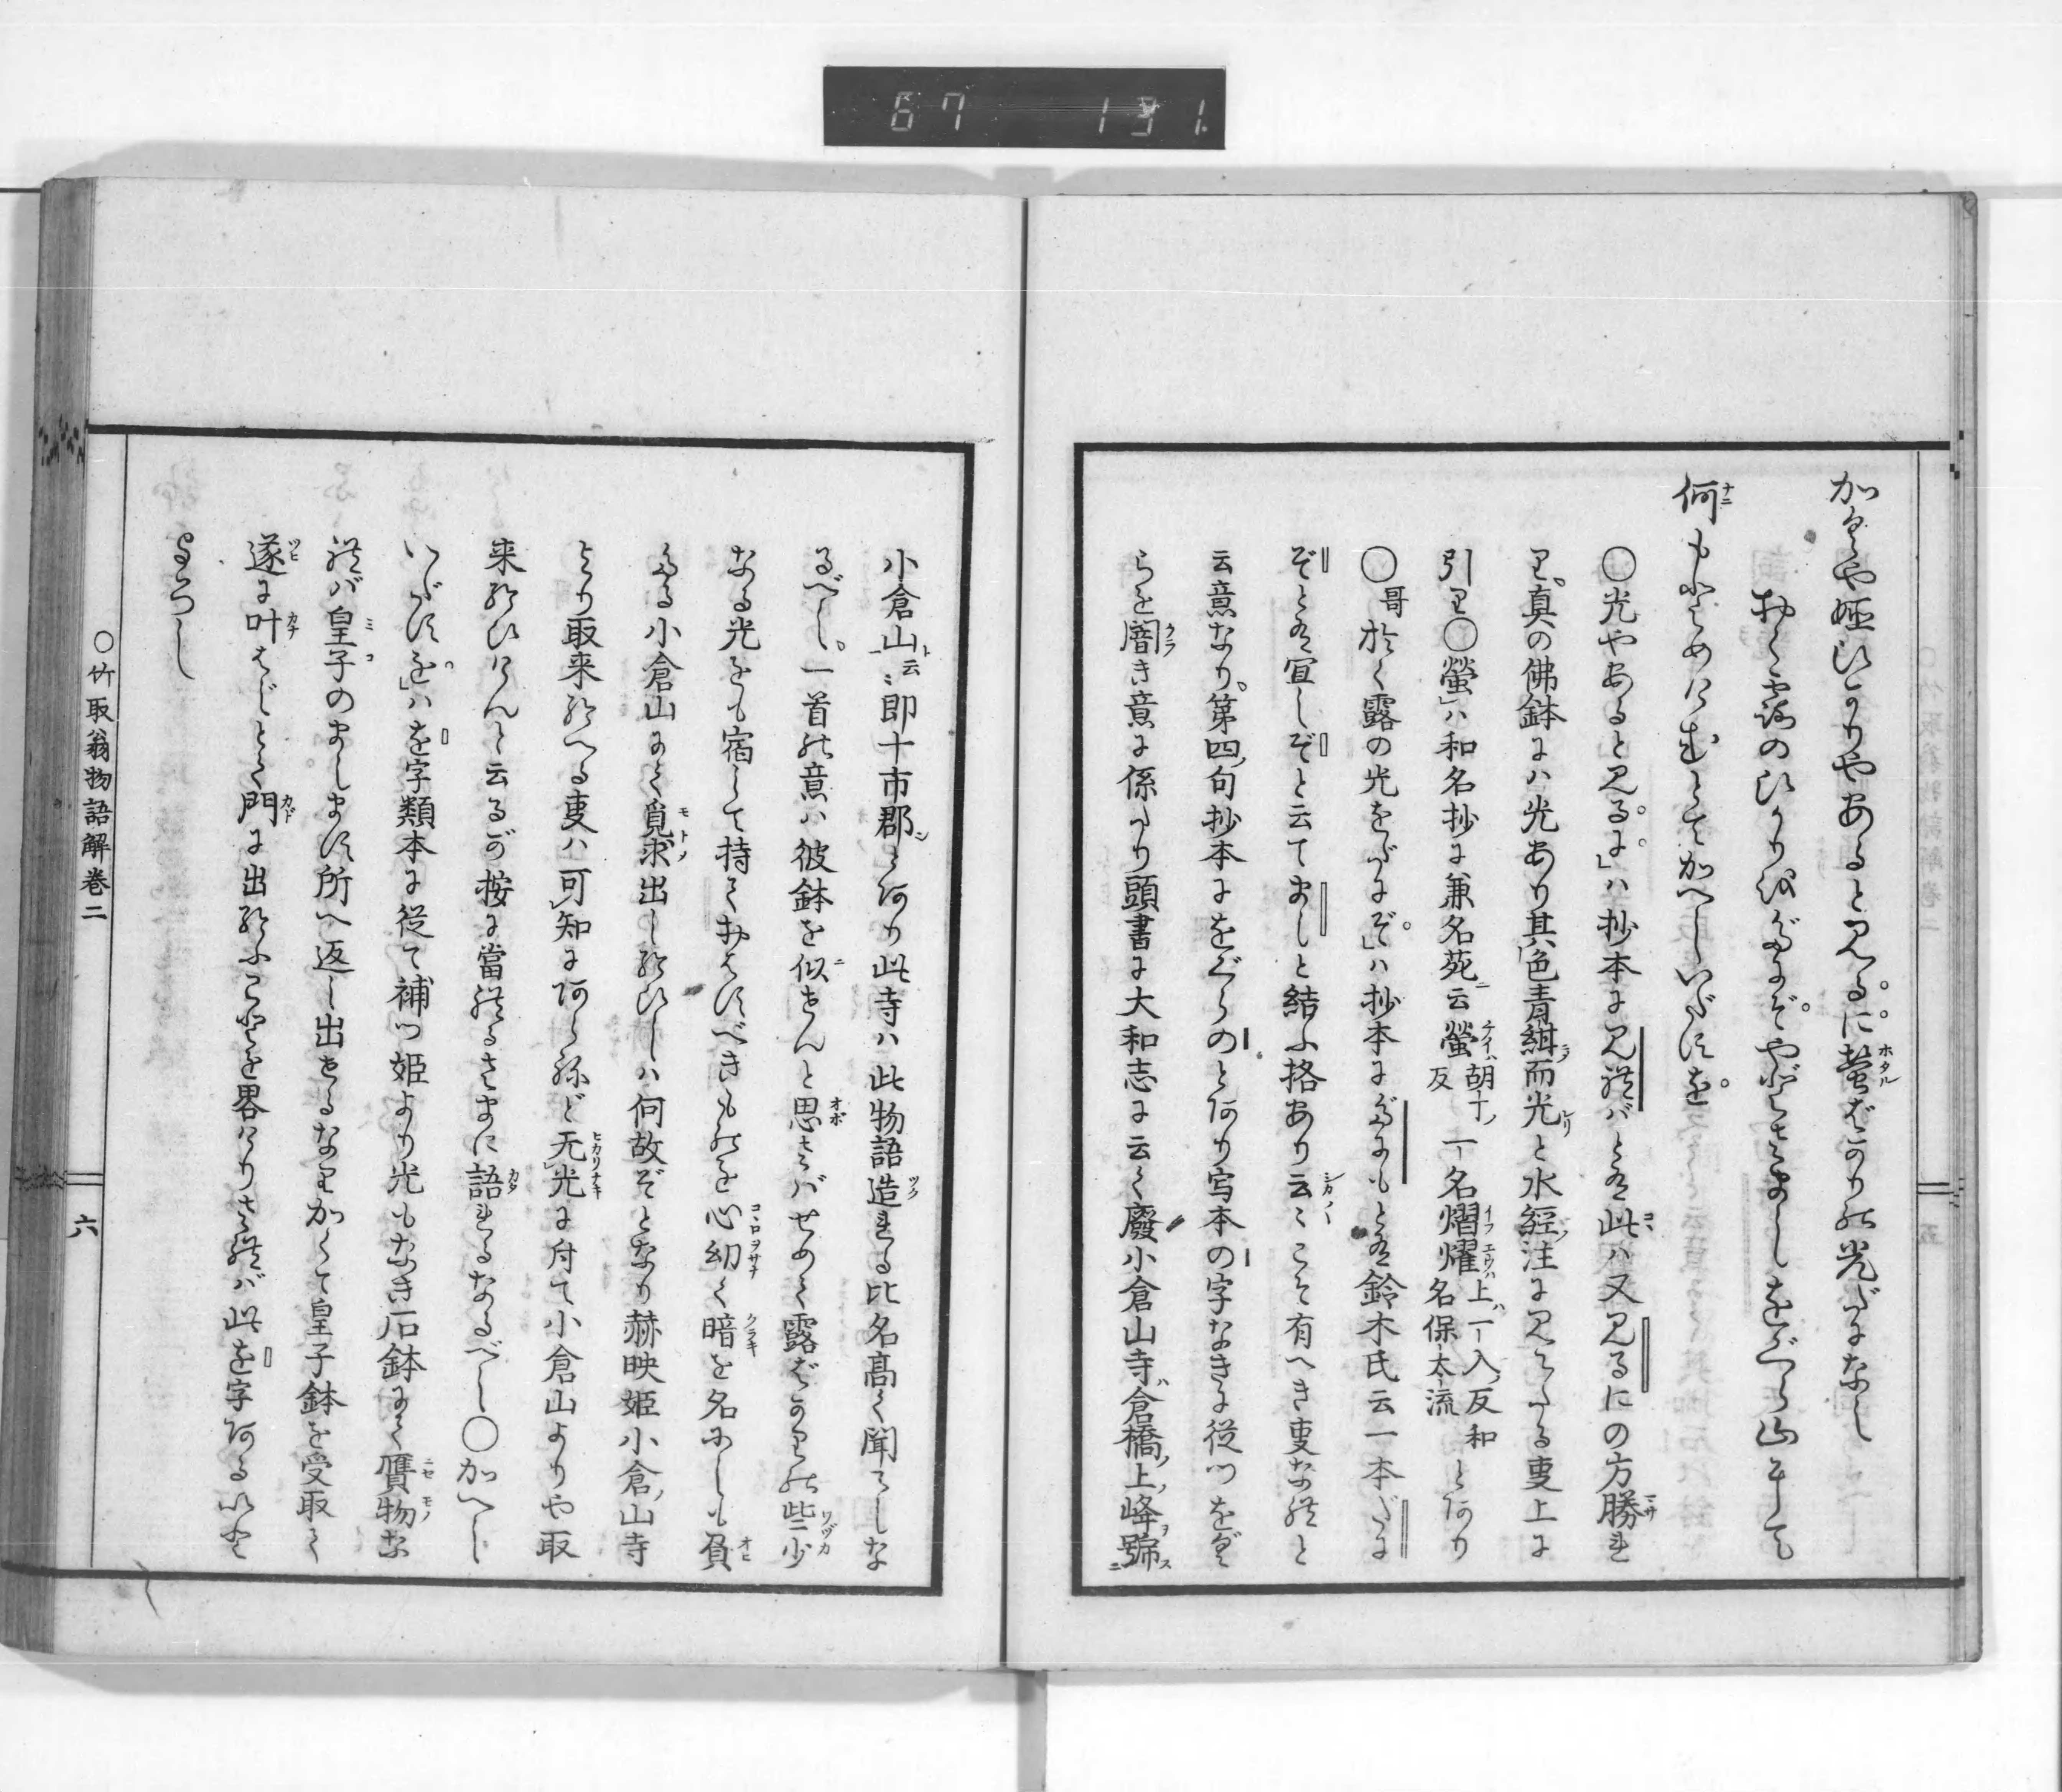 67 131.
かぐや姫ひかりやあると見るに螢ばかりの光だになし
おく露のひかりをだにぞやどさましをぐら山にして
何もとめけむとてかへしいだすを
〇光やあると見るに」ハ抄本に見れバとあ此ハ又見るにの方勝れ
り真の佛鉢にハ光あり其色青紺而光と水經注に見えたる事上に
引り〇螢」ハ和名抄に兼名苑云螢胡丁反一名熠燿上一入反和名保太流とあり
〇哥於く露の光をだにぞ」ハ抄本にだにもとあ鈴木氏云一本だに
ぞとあ宜しぞと云てましと結ふ格あり云〻こそ有へき事なれと
云意なり第四句抄本にをぐらのとあり写本の字なきに従つをぐ
らを闇き意に係たり頭書に大和志に云く廢小倉山寺倉橋上峰號
小倉山云〻即十市郡とあり此寺ハ此物語造れる比名高く聞えしな
るべし一首の意ハ彼鉢を似せんと思さバせめて露ばかりの些少
なる光をも宿して持ておはすべきものを心幼く暗を名にしも負
たる小倉山にて覓求出し給ひしハ何故ぞとなり赫映姫小倉山寺
より取来給へる事ハ可知にあらねど无光に付て小倉山よりや取
来給ひけんと云るが按に當れるさまに語れるなるべし〇かへし
いだすを」ハを字類本に従て補つ姫より光もなき石鉢にて贋物な
れバ皇子のまします所へ返し出せるなりかくて皇子鉢を受取て
遂に叶はじとて門に出給ふことを畧けりされバ此を字あるいと
よろし
〇竹取翁物語解卷二
六